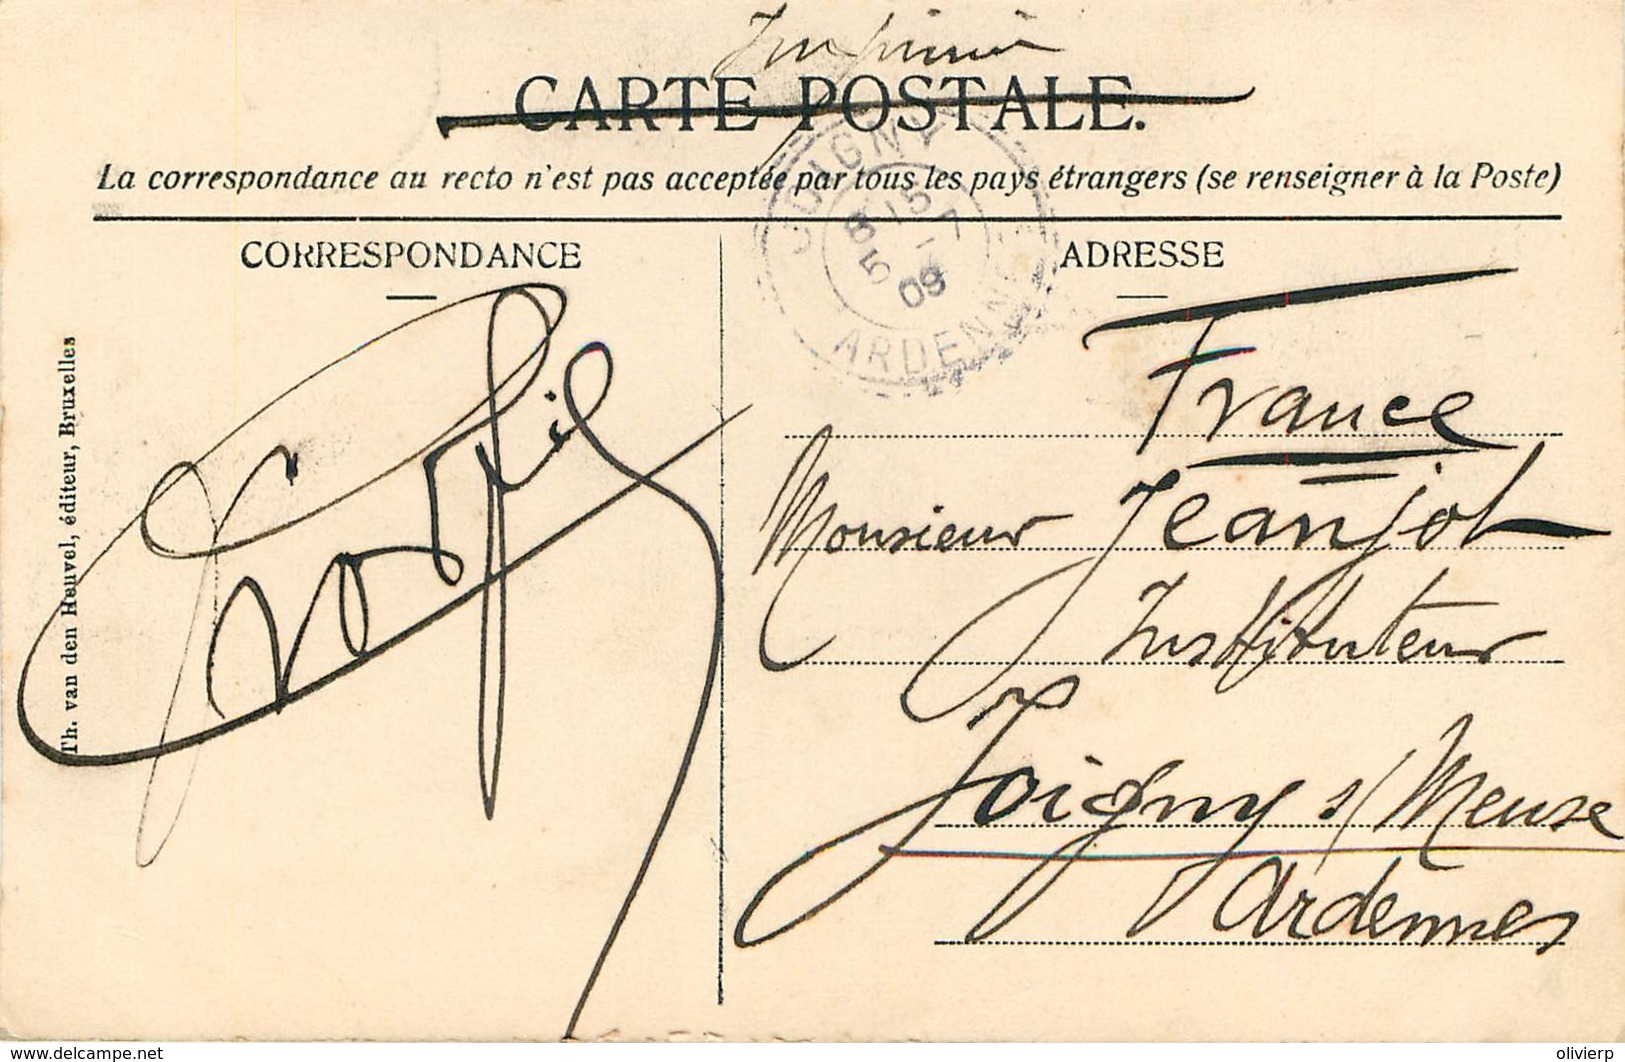 Imprimé
CARTE POSTALE.
La correspondance au recto n'est pas acceptée par tous les pays étrangers (se renseigner à la Poste)
JOIGNY
8 15
5 - 7
09
ARDENNES
CORRESPONDANCE
ADRESSE
Th. van den Heuvel, éditeur, Bruxelles
France
Monsieur Jeanjot
Instituteur
Joigny s/Meuse
Ardennes
http://www.delcampe.net
olivierp